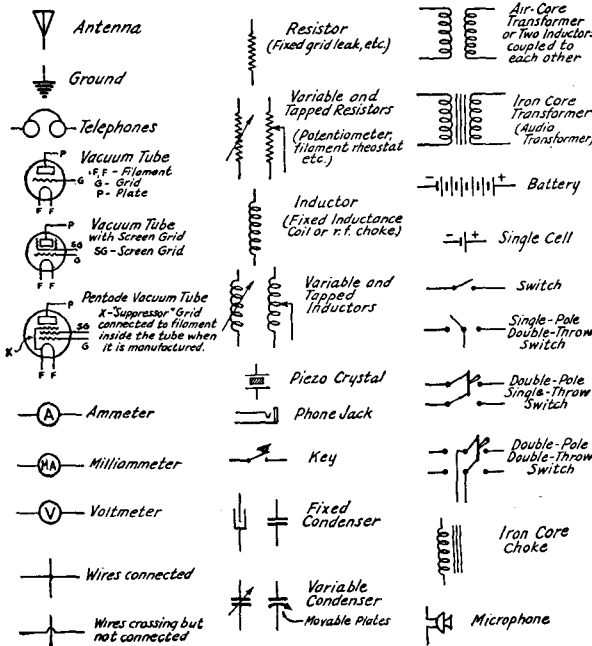 Antenna
Ground
Telephones
P
Vacuum Tube
F, F - Filament
G - Grid
P - Plate
G
F F
P
Vacuum Tube
with Screen Grid
SG - Screen Grid
SG
G
F F
P
Pentode Vacuum Tube
X-"Suppressor" Grid
connected to filament
inside the tube when
it is manufactured.
SG
G
X
F F
A
Ammeter
MA
Milliammeter
V
Voltmeter
Wires connected
Wires crossing but
not connected
Resistor
(Fixed grid leak, etc.)
Variable and
Tapped Resistors
(Potentiometer,
filament rheostat
etc.)
Inductor
(Fixed Inductance
Coil or r.f. choke)
Variable and
Tapped
Inductors
Piezo Crystal
Phone Jack
Key
Fixed
Condenser
Variable
Condenser
Movable Plates
Air-Core
Transformer
or Two Inductors
coupled to
each other
Iron Core
Transformer
(Audio
Transformer)
- +
Battery
- +
Single Cell
Switch
Single-Pole
Double-Throw
Switch
Double-Pole
Single-Throw
Switch
Double-Pole
Double-Throw
Switch
Iron Core
Choke
Microphone